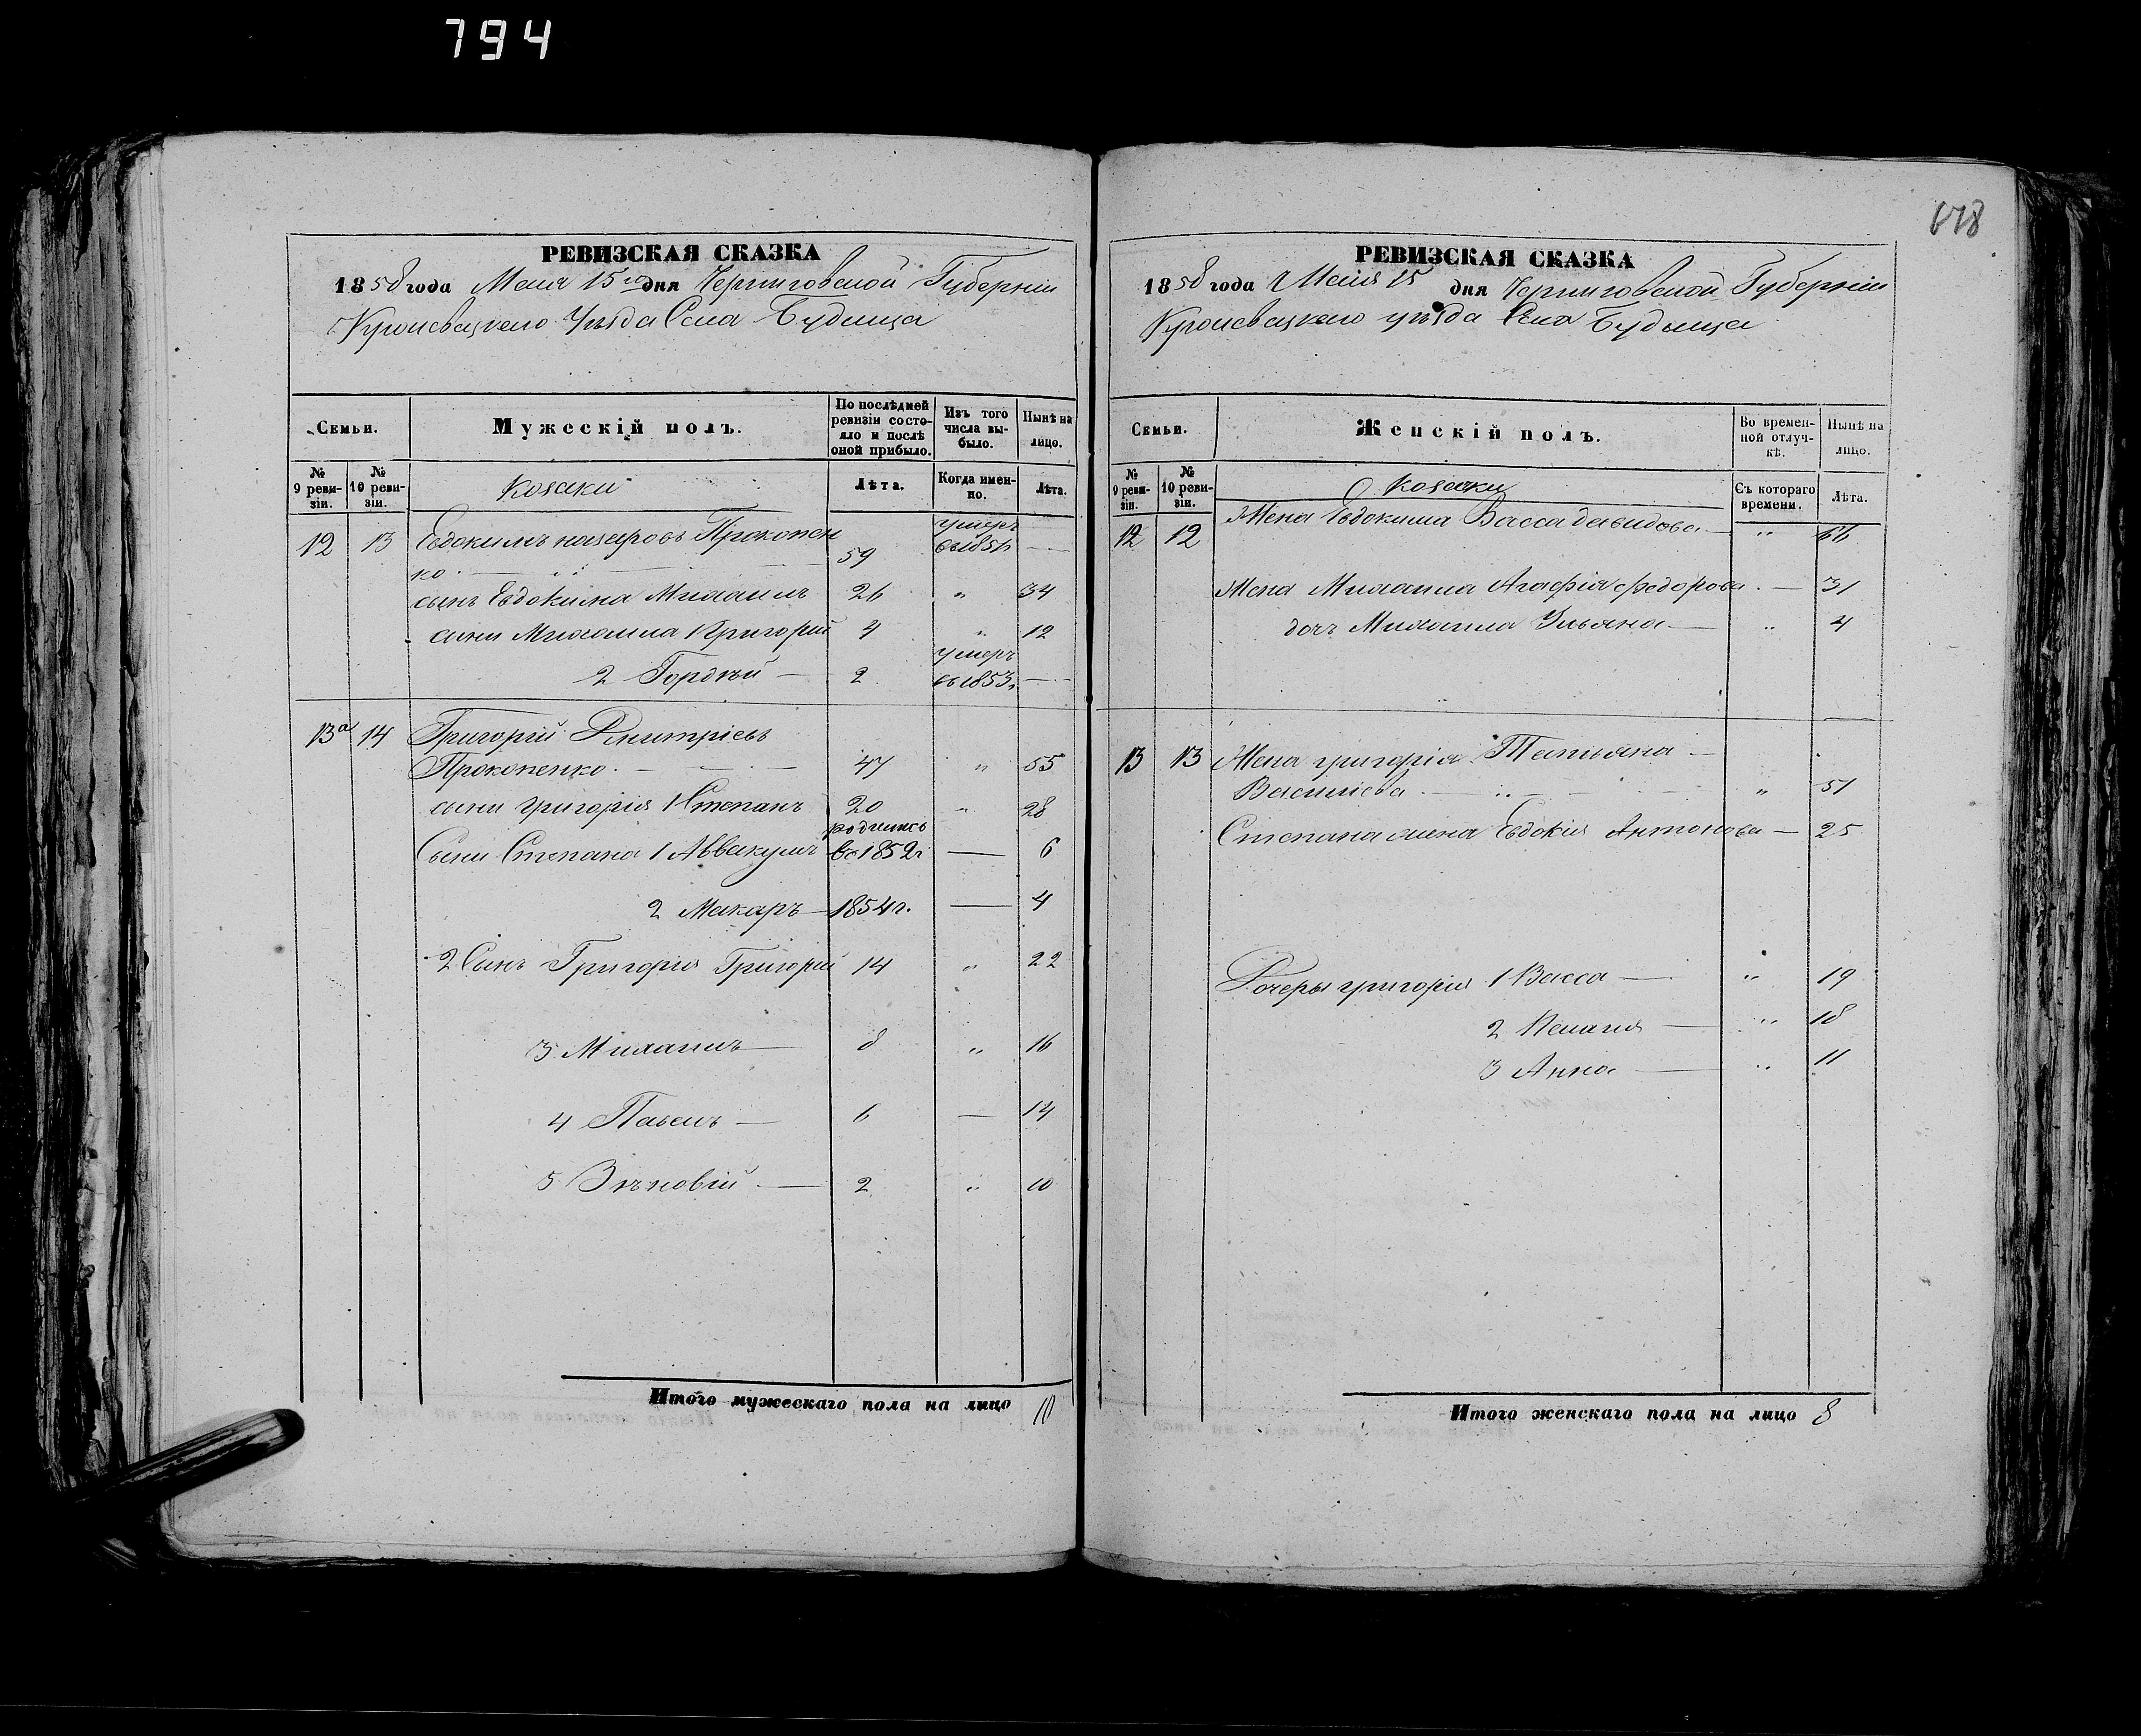 794
678
РЕВИЗСКАЯ СКАЗКА
1858 года Мая 15го дня Черниговской Губерніи
Кролевецкаго Уѣзда Села Будища
Семьи.
Мужескій полъ.
По послѣдней ревизіи состояло и послѣ оной прибыло.
Изъ того числа выбыло.
Нынѣ на лицо.
№ 9 ревизіи.
№ 10 ревизіи.
Козаки
Лѣта.
Когда именно.
Лѣта.
12 13 Евдокимъ назаровъ Прокопен
ко 59 умеръ —
сынъ Евдокима Михаилъ 26 " 34
сини Михаила 1 Григорій 4 " 12
2 Гордѣй — 2 умеръ въ 1853 —
13а 14 Григорій Дмитріевъ
Прокопенко — 47 " 55
сыни григорія 1 Степанъ 20 " 28
Сыни Степана 1 Аввакумъ родились въ 1852г — 6
2 Макаръ — 1854г. — 4
2 Сынъ Григорія Григорій 14 " 22
3 Михаилъ — 8 " 16
4 Павелъ — 6 — 14
5 Зѣновій — 2 " 10
Итого мужескаго пола на лицо 10
РЕВИЗСКАЯ СКАЗКА
1858 года Мая 15 дня Черниговской Губерніи
Кролевецкаго уѣзда Села Будища
Семьи.
Женскій полъ.
Во временной отлучкѣ.
Нынѣ на лицо.
№ 9 ревизіи.
№ 10 ревизіи.
Козачки
Съ котораго времени.
Лѣта.
12 12 Жена Евдокима Васса давидова — " 66
Жена Михаила Агафія федорова — 31
дочъ Михаила Ульяна — " 4
13 13 Жена григорія Татьяна —
Василіева — " 51
Степана жена Евдокія Антонова — 25
Дочеры григорія 1 Васса — " 19
2 Пелагія — " 18
3 Анна — " 11
Итого женскаго пола на лицо 8